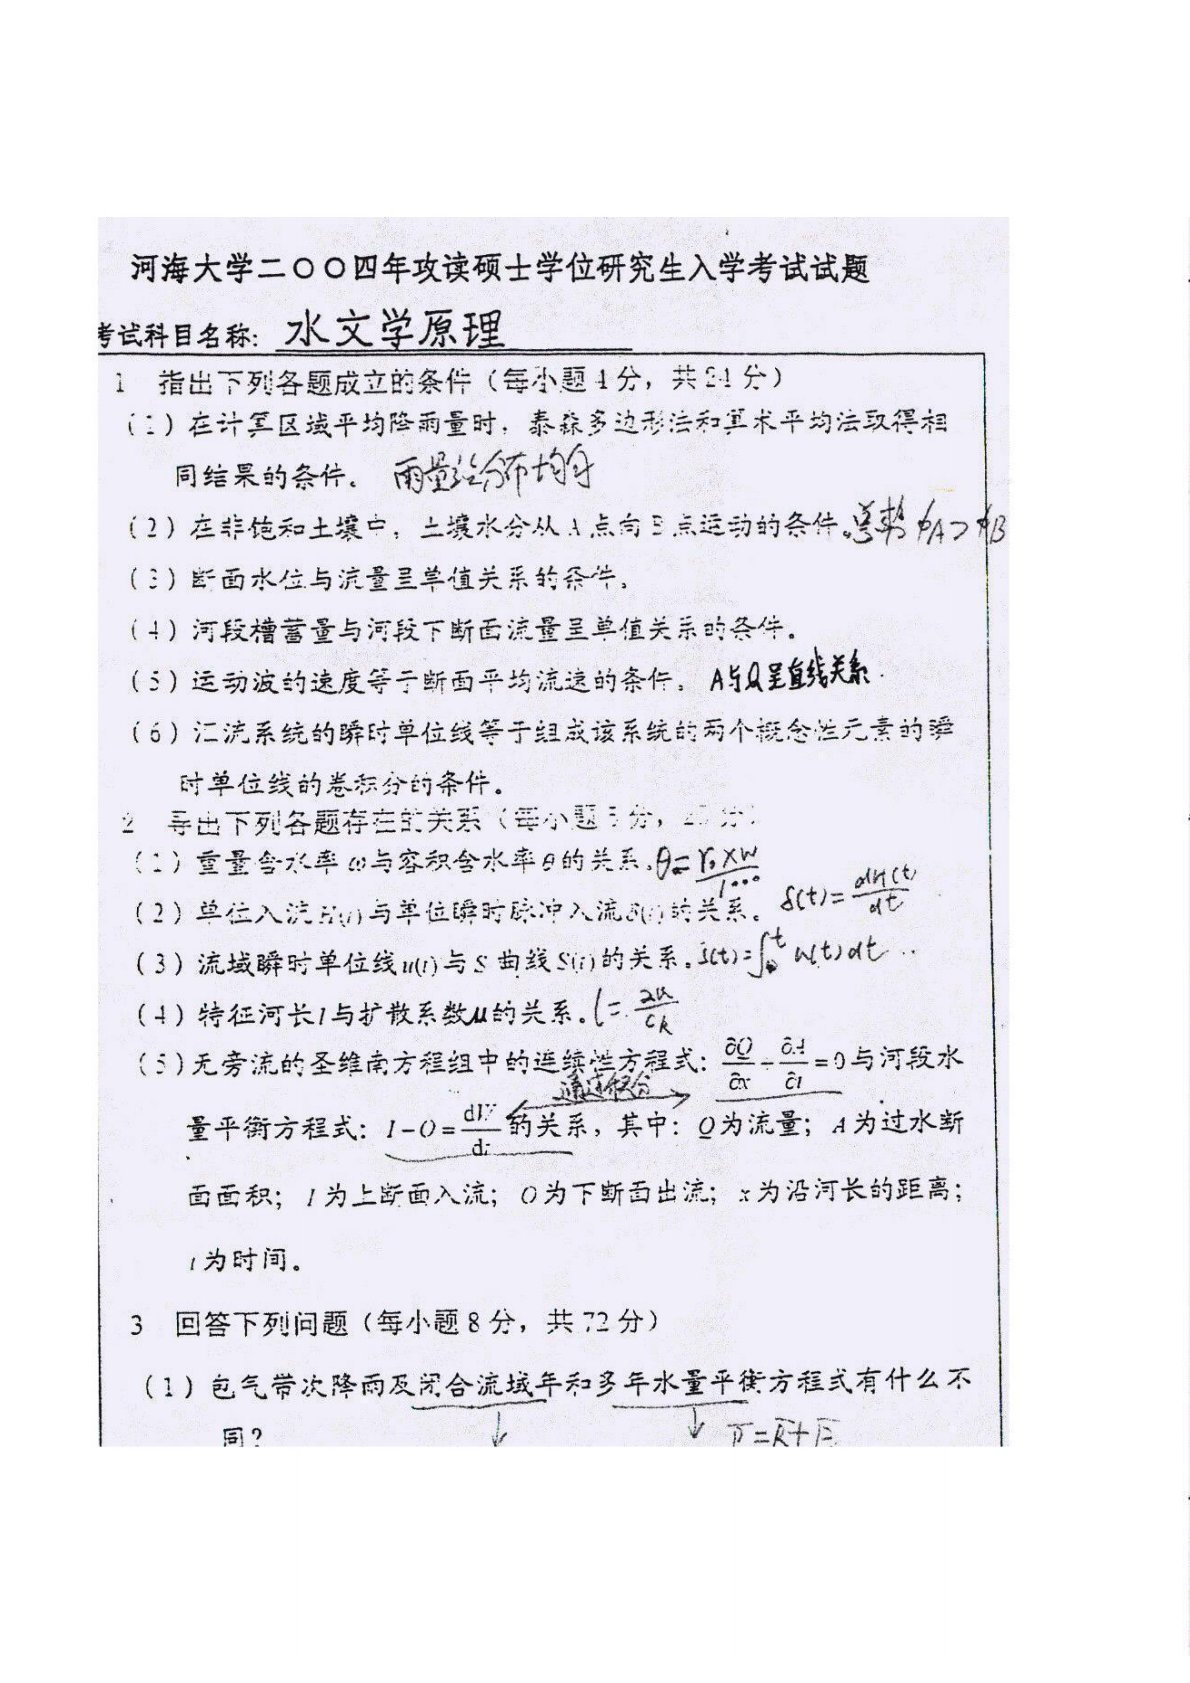 河海大学二〇〇四年攻读硕士学位研究生入学考试试题
考试科目名称: 水文学原理
1 指出下列各题成立的条件（每小题4分，共24分）
(1) 在计算区域平均降雨量时，泰森多边形法和算术平均法取得相
同结果的条件。 雨量站分布均匀
(2) 在非饱和土壤中，土壤水分从A点向B点运动的条件。总势 φA > φB
(3) 断面水位与流量呈单值关系的条件。
(4) 河段槽蓄量与河段下断面流量呈单值关系的条件。
(5) 运动波的速度等于断面平均流速的条件。 A与Q呈直线关系.
(6) 汇流系统的瞬时单位线等于组成该系统的两个概念性元素的瞬
时单位线的卷积分的条件。
2 导出下列各题存在的关系（每小题 分， 分）
(1) 重量含水率ω与容积含水率θ的关系。θ=
(2) 单位入流H(t)与单位瞬时脉冲入流δ(t)的关系。 δ(t)=dH(t)/dt
(3) 流域瞬时单位线u(t)与S曲线S(t)的关系。S(t)=∫₀ᵗ u(t)dt ..
(4) 特征河长l与扩散系数μ的关系。l=2μ/Ck
(5) 无旁流的圣维南方程组中的连续性方程式: ∂Q/∂x+∂A/∂t=0与河段水
通过积分
量平衡方程式: I-O=dW/dt的关系，其中: Q为流量; A为过水断
面面积; I为上断面入流; O为下断面出流; x为沿河长的距离;
t为时间。
3 回答下列问题（每小题8分，共72分）
(1) 包气带次降雨及闭合流域年和多年水量平衡方程式有什么不
同? P̅=R̅+E̅